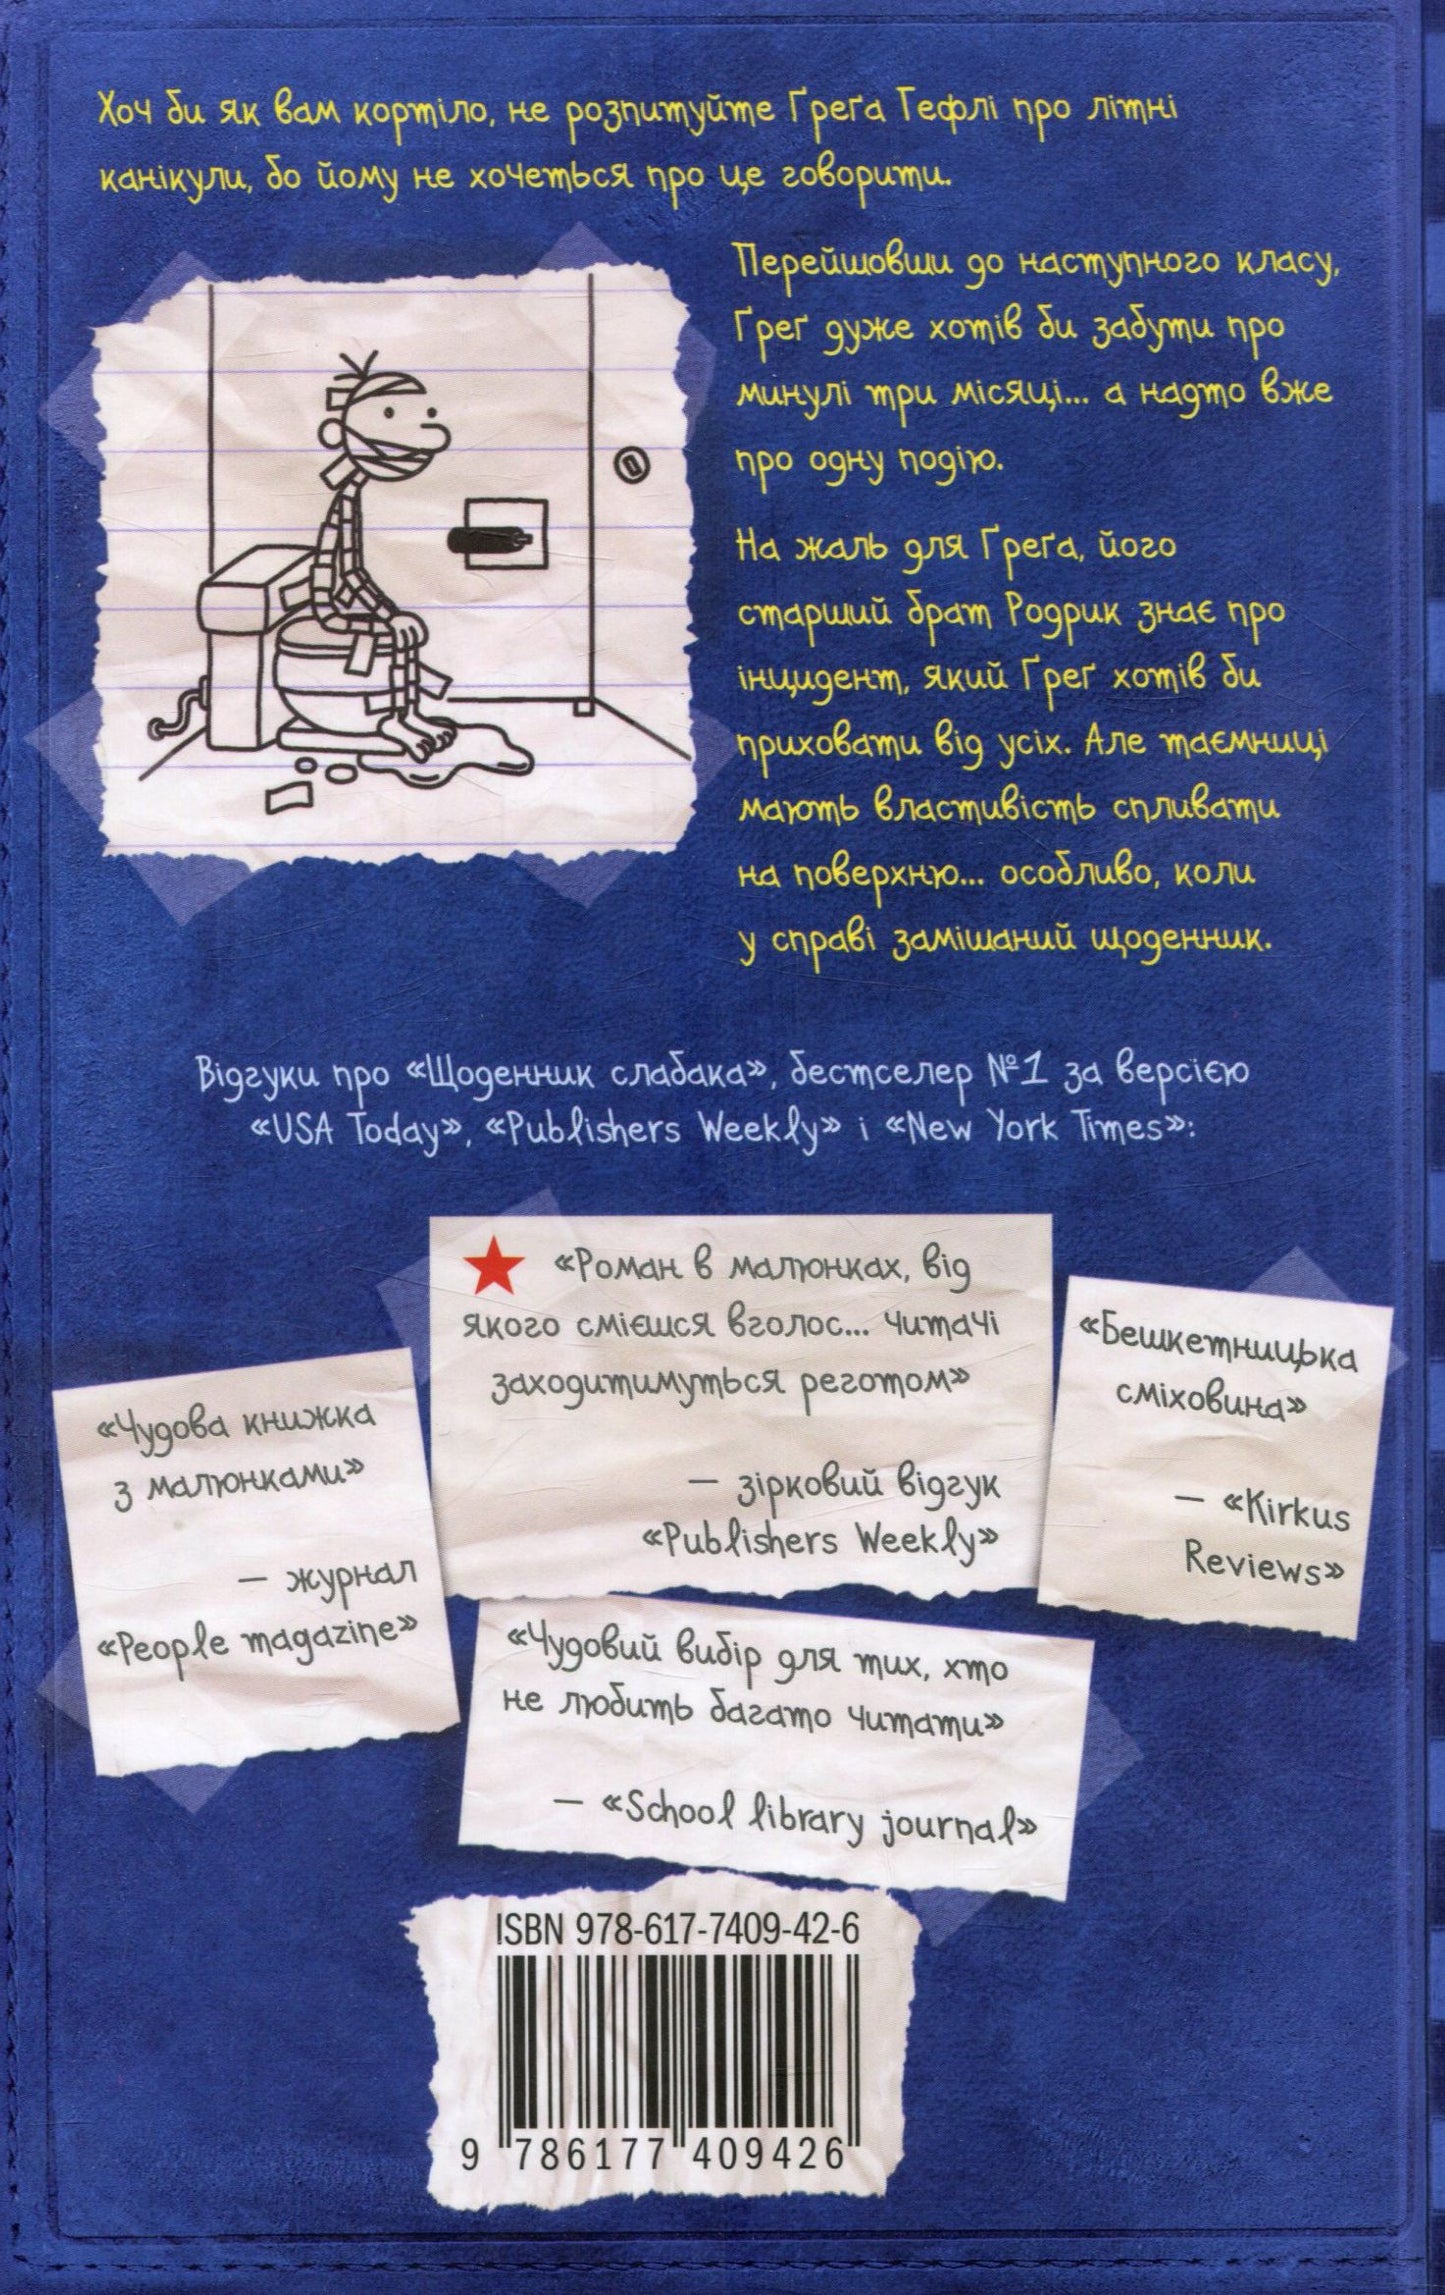 Хоч би як вам кортіло, не розпитуйте Ґреґа Гефлі про літні
канікули, бо йому не хочеться про це говорити.
Перейшовши до наступного класу,
Ґреґ дуже хотів би забути про
минулі три місяці... а надто вже
про одну подію.
На жаль для Ґреґа, його
старший брат Родрик знає про
інцидент, який Ґреґ хотів би
приховати від усіх. Але таємниці
мають властивість спливати
на поверхню... особливо, коли
у справі замішаний щоденник.
Відгуки про «Щоденник слабака», бестселер №1 за версією
«USA Today», «Publishers Weekly» і «New York Times»:
«Роман в малюнках, від
якого смієшся вголос... Читачі
заходитимуться реготом»
— зірковий відгук
«Publishers Weekly»
«Бешкетницька
сміховина»
— «Kirkus
Reviews»
«Чудова книжка
з малюнками»
— журнал
«People magazine»
«Чудовий вибір для тих, хто
не любить багато читати»
— «School library journal»
ISBN 978-617-7409-42-6
9 786177 409426